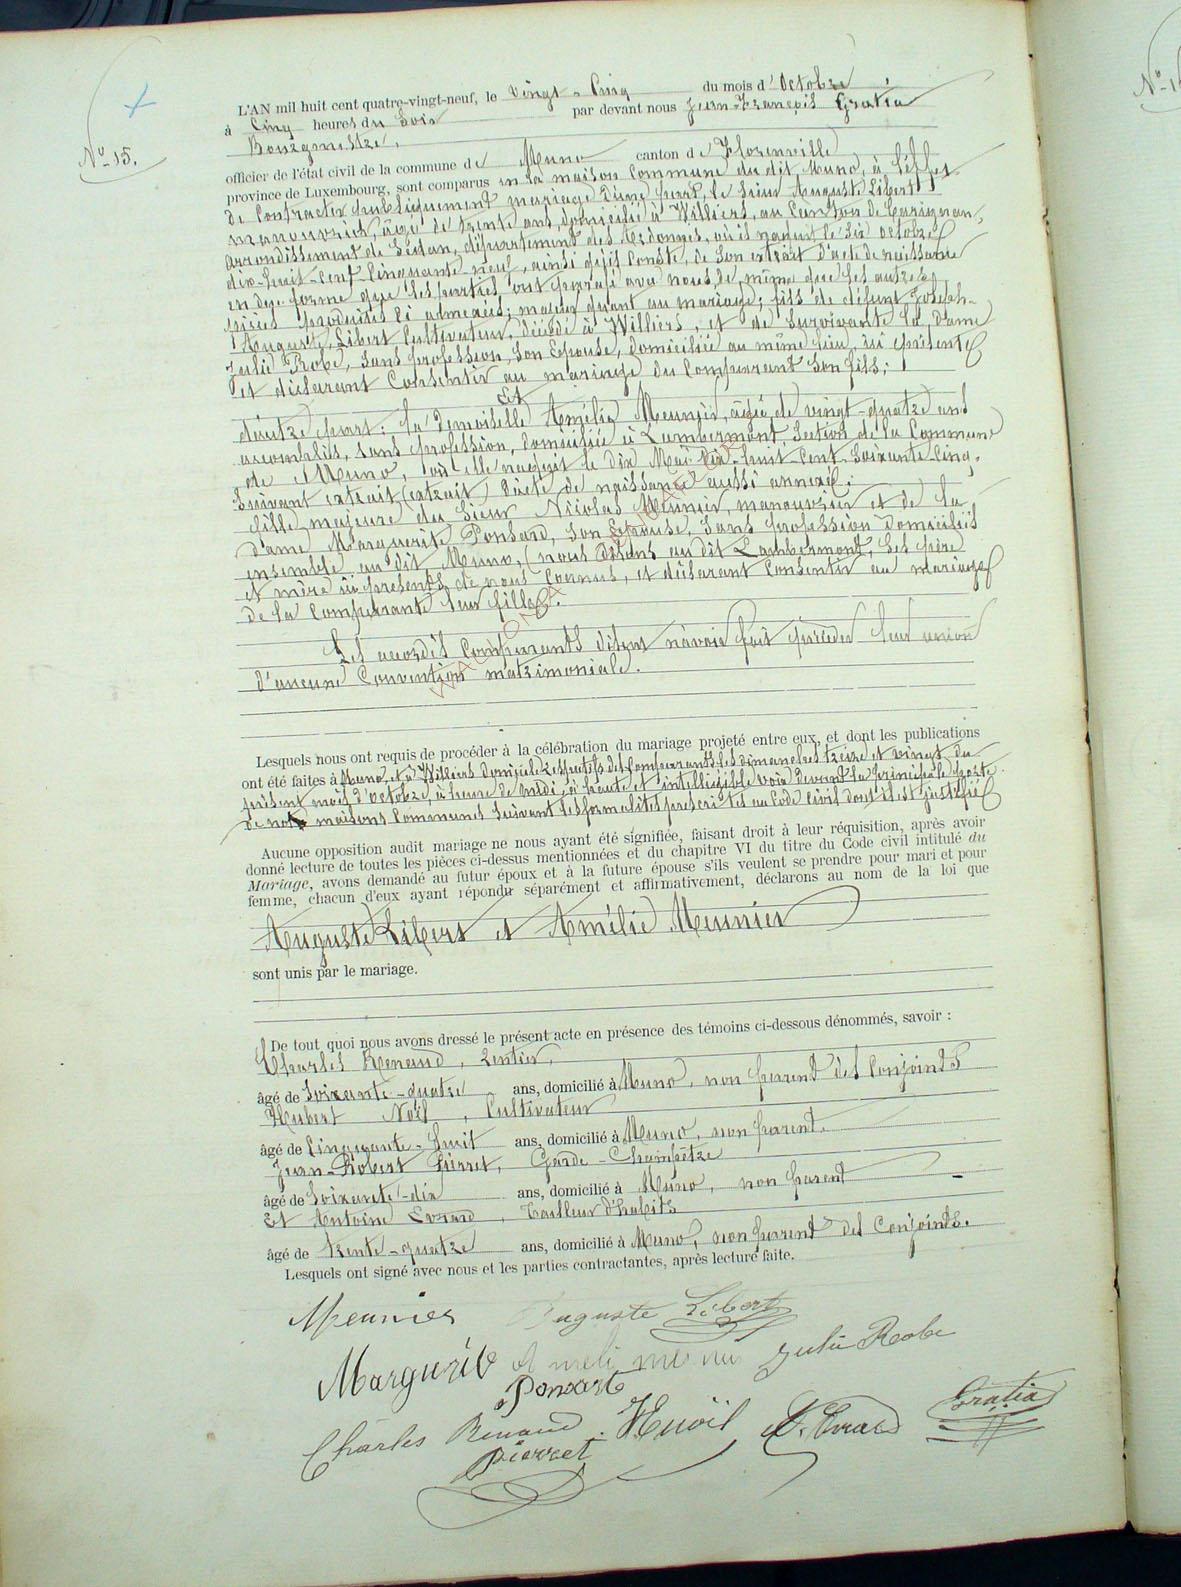 N° 15.
L'AN mil huit cent quatre-vingt-neuf, le vingt-cinq du mois d'Octobre
à Cinq heures du Soir par devant nous Jean-François Gratia
Bourgmestre,
officier de l'état civil de la commune de Muno canton de Florenville
province de Luxembourg, sont comparus en la maison Commune du dit Muno, à l'effet
de Contracter publiquement mariage d'une part, le Sieur Auguste Libert
manouvrier, âgé de trente ans, domicilié à Williers, au Canton de Carignan,
arrondissement de Sédan, département des Ardennes, où il naquit le six octobre
dix-huit-cent-Cinquante-neuf, ainsi qu'il conste, de son extrait d'acte de naissance
en due forme que les parties ont produit avec nous, de même que les autres
pièces produites ci annexées; majeur quant au mariage; fils de défunt Joseph-
Auguste, Libert Cultivateur, décédé à Williers, et de Survivante la Dame
Julie Robe, Sans profession, Son Epouse, domiciliée au même lieu, ici présente
et déclarant Consentir au mariage du Comparant Son fils;
Et
d'autre part: la Demoiselle Amélie Meunier, âgée de vingt-quatre ans
accomplis, Sans profession, domiciliée à Lambermont, Section de la Commune
de Muno, où elle naquit le dix Mai dix-huit-Cent-Soixante Cinq,
Suivant extrait (extrait) d'acte de naissance aussi annexé;
fille majeure du Sieur Nicolas Meunier, manouvrier et de la
Dame Marguerite Ponsard, Son Epouse, Sans profession domiciliés
ensemble au dit, Muno, (nous disons au dit Lambermont, Ses père
et mère ici présents de nous Connus, et déclarant Consentir au mariage
de la Comparante leur fille.
Les accordés Comparants disent n'avoir fait précéder leur union
d'aucune Convention matrimoniale.
Lesquels nous ont requis de procéder à la célébration du mariage projeté entre eux, et dont les publications
ont été faites à Muno, et à Williers domicile respectifs des Comparants les dimanches treize et vingt du
présent mois d'octobre, à heure de midi, à haute et intelligible voix devant la principale porte
de nos maisons Communes Suivant les formalités prescrites au Code Civil dont il est justifié
Aucune opposition audit mariage ne nous ayant été signifiée, faisant droit à leur réquisition, après avoir
donné lecture de toutes les pièces ci-dessus mentionnées et du chapitre VI du titre du Code civil intitulé du
Mariage, avons demandé au futur époux et à la future épouse s'ils veulent se prendre pour mari et pour
femme, chacun d'eux ayant répondu séparément et affirmativement, déclarons au nom de la loi que
Auguste Libert et Amélie Meunier
sont unis par le mariage.
De tout quoi nous avons dressé le présent acte en présence des témoins ci-dessous dénommés, savoir :
Charles Renaud, rentier,
âgé de Soixante-quatre ans, domicilié à Muno, non parent des Conjoints
Hubert Noël, Cultivateur
âgé de Cinquante-huit ans, domicilié à Muno, non parent.
Jean-Robert Pierret, Garde-Champêtre
âgé de Soixante-dix ans, domicilié à Muno, non parent
Et Antoine Evrard, Tailleur d'habits
âgé de trente-quatre ans, domicilié à Muno, non parent des Conjoints.
Lesquels ont signé avec nous et les parties contractantes, après lecture faite.
Meunier Auguste Libert
Marguerite Ameli meunier Julie Robe
Ponsart
Charles Renaud. H Noël A. Evrard Gratia
Pierret